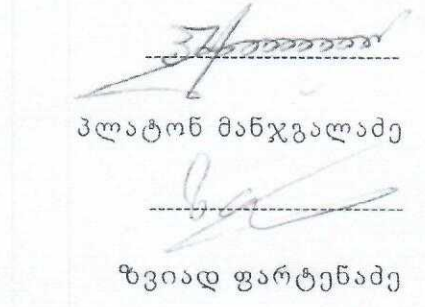 პლატონ მანჯგალაძე
ზვიად ფარტენაძე